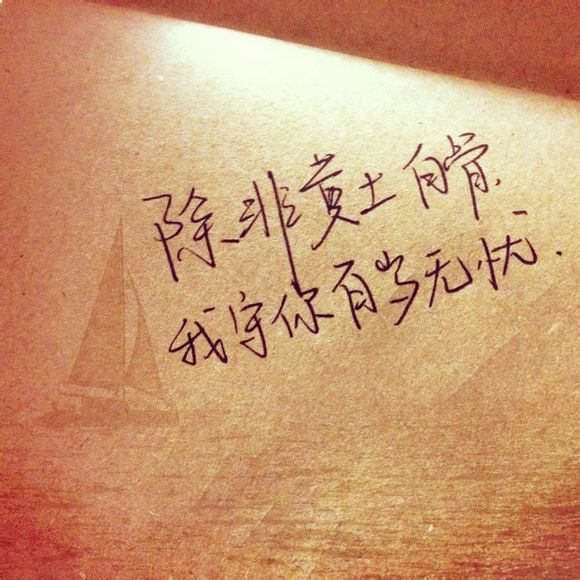 除非黄土白骨.
我守你百岁无忧.